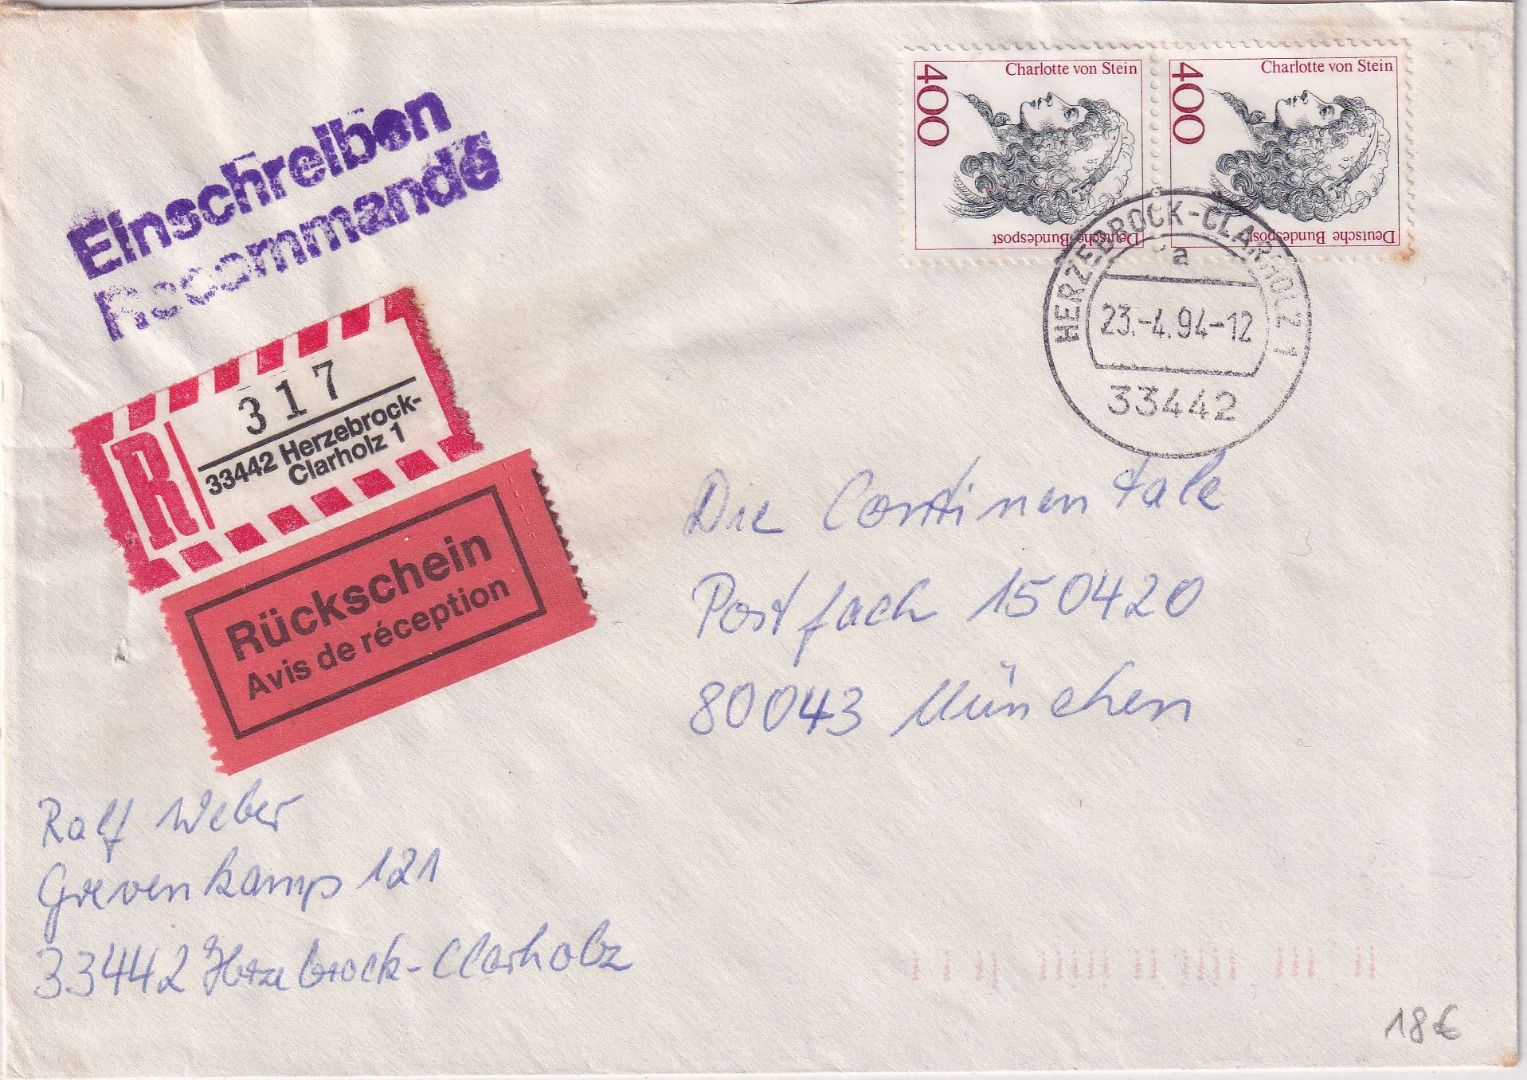 Einschreiben
Recommandé
400
Charlotte von Stein
Deutsche Bundespost
400
Charlotte von Stein
Deutsche Bundespost
HERZEBROCK-CLARHOLZ 1
a
23.-4.94-12
33442
R
317
33442 Herzebrock-
Clarholz 1
Rückschein
Avis de réception
Die Continentale
Postfach 150420
80043 München
Ralf Weber
Grevenkamp 121
33442 Herzebrock-Clarholz
18€